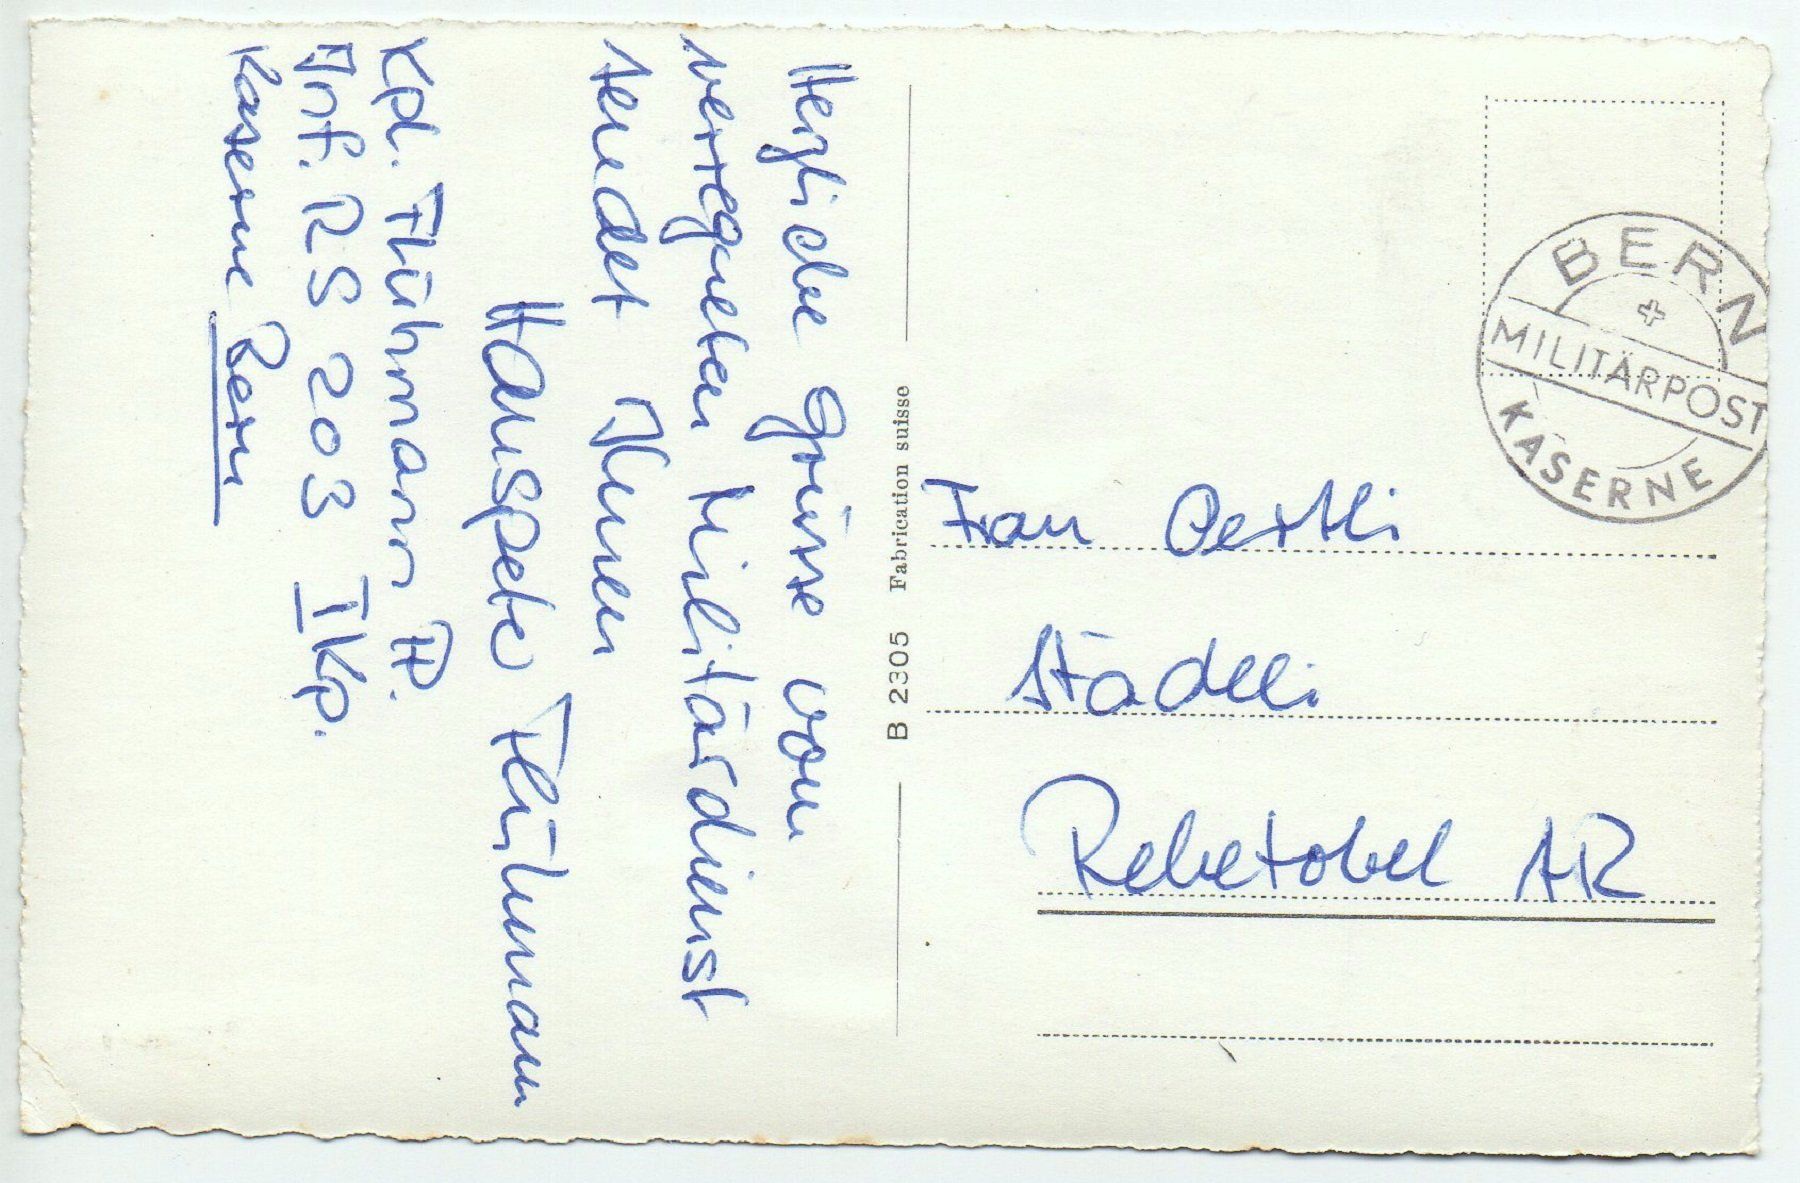 Herzliche Grüsse vom
verregneten Militärdienst
sendet Ihnen
Hanspeter Flühmann
Kpl. Flühmann H.
Inf. RS 203 I Kp.
Kaserne Bern
B 2305 Fabrication suisse
BERN
MILITÄRPOST
KASERNE
Frau Oertli
Städeli
Rehetobel AR